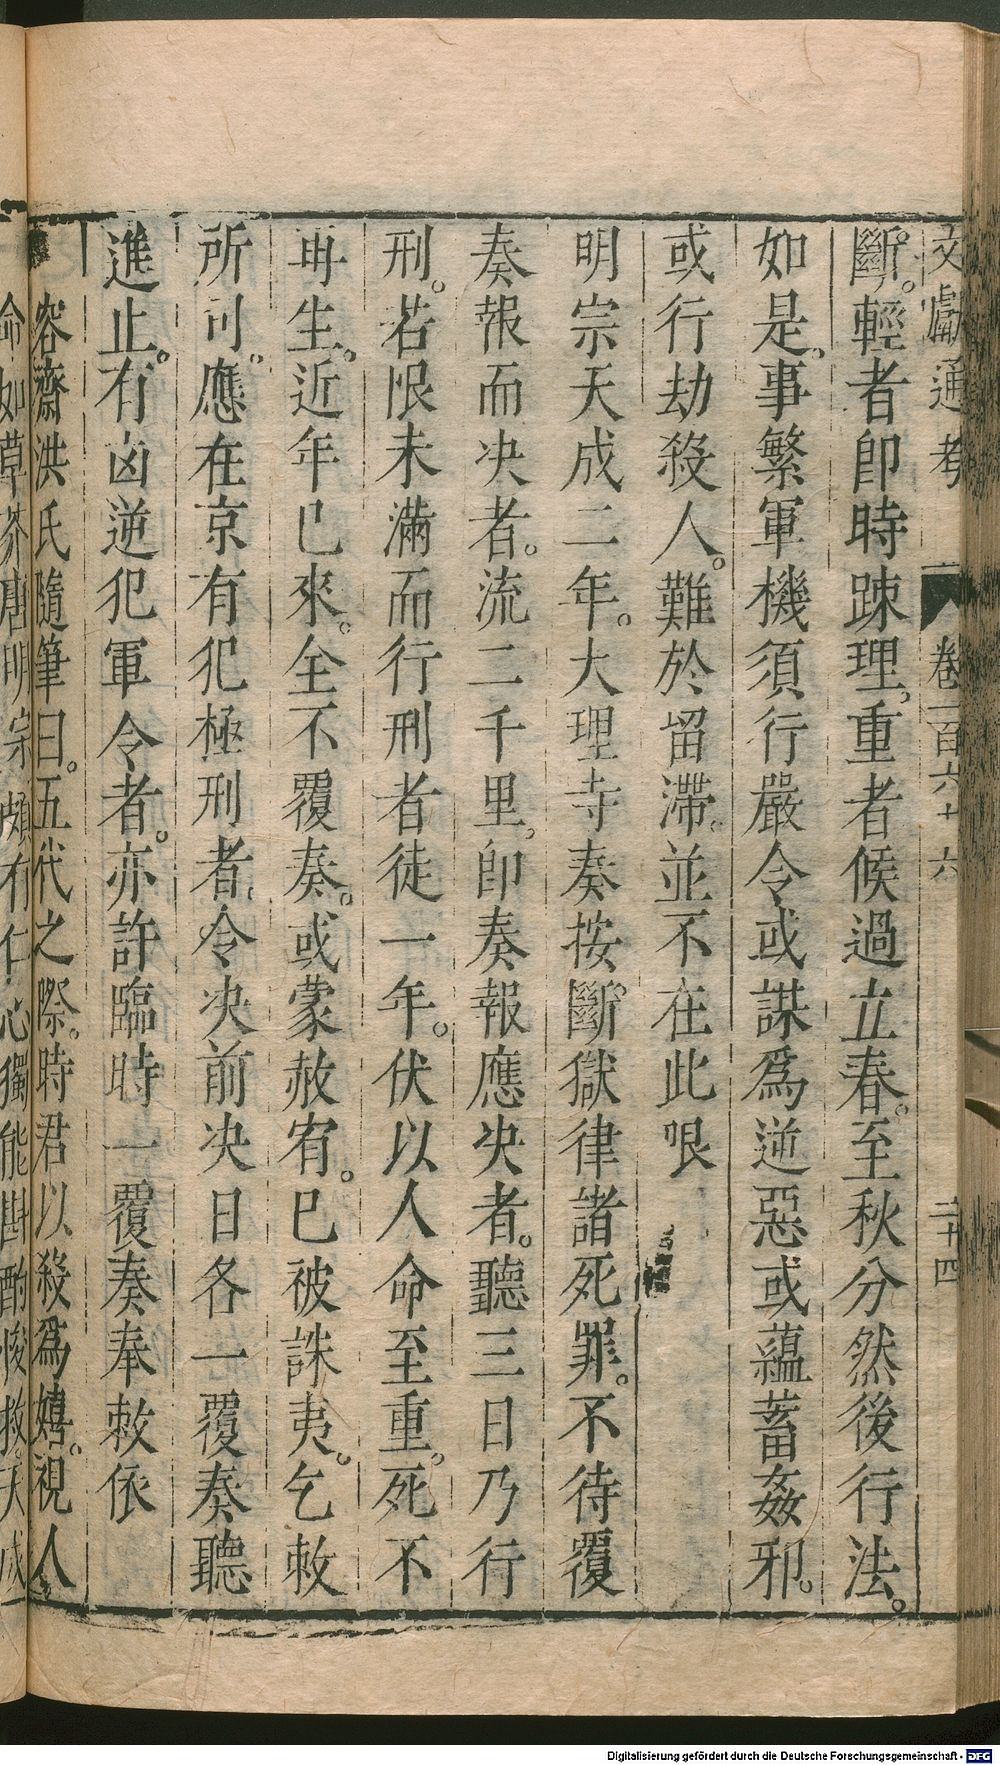 文獻通考 卷一百六十六 二十四
斷。輕者卽時踈理,重者候過立春。至秋分然後行法。
如是。事繁軍機須行嚴令或謀爲逆惡或蘊蓄姦邪。
或行劫殺人。難於留滯。並不在此限
明宗天成二年。大理寺奏按斷獄律諸死罪。不待覆
奏報而决者。流二千里,卽奏報應决者。聽三日乃行
刑。若限未滿而行刑者徒一年。伏以人命至重。死不
再生。近年已來。全不覆奏。或蒙赦宥。已被誅夷。乞敕
所司。應在京有犯極刑者。令决前决日各一覆奏聽
進止。有凶逆犯軍令者。亦許臨時一覆奏奉敕依
容齋洪氏隨筆曰。五代之際。時君以殺爲嬉。視人
命如草芥唐明宗頗有仁心獨能斟酌悛救。天成
Digitalisierung gefördert durch die Deutsche Forschungsgemeinschaft - DFG